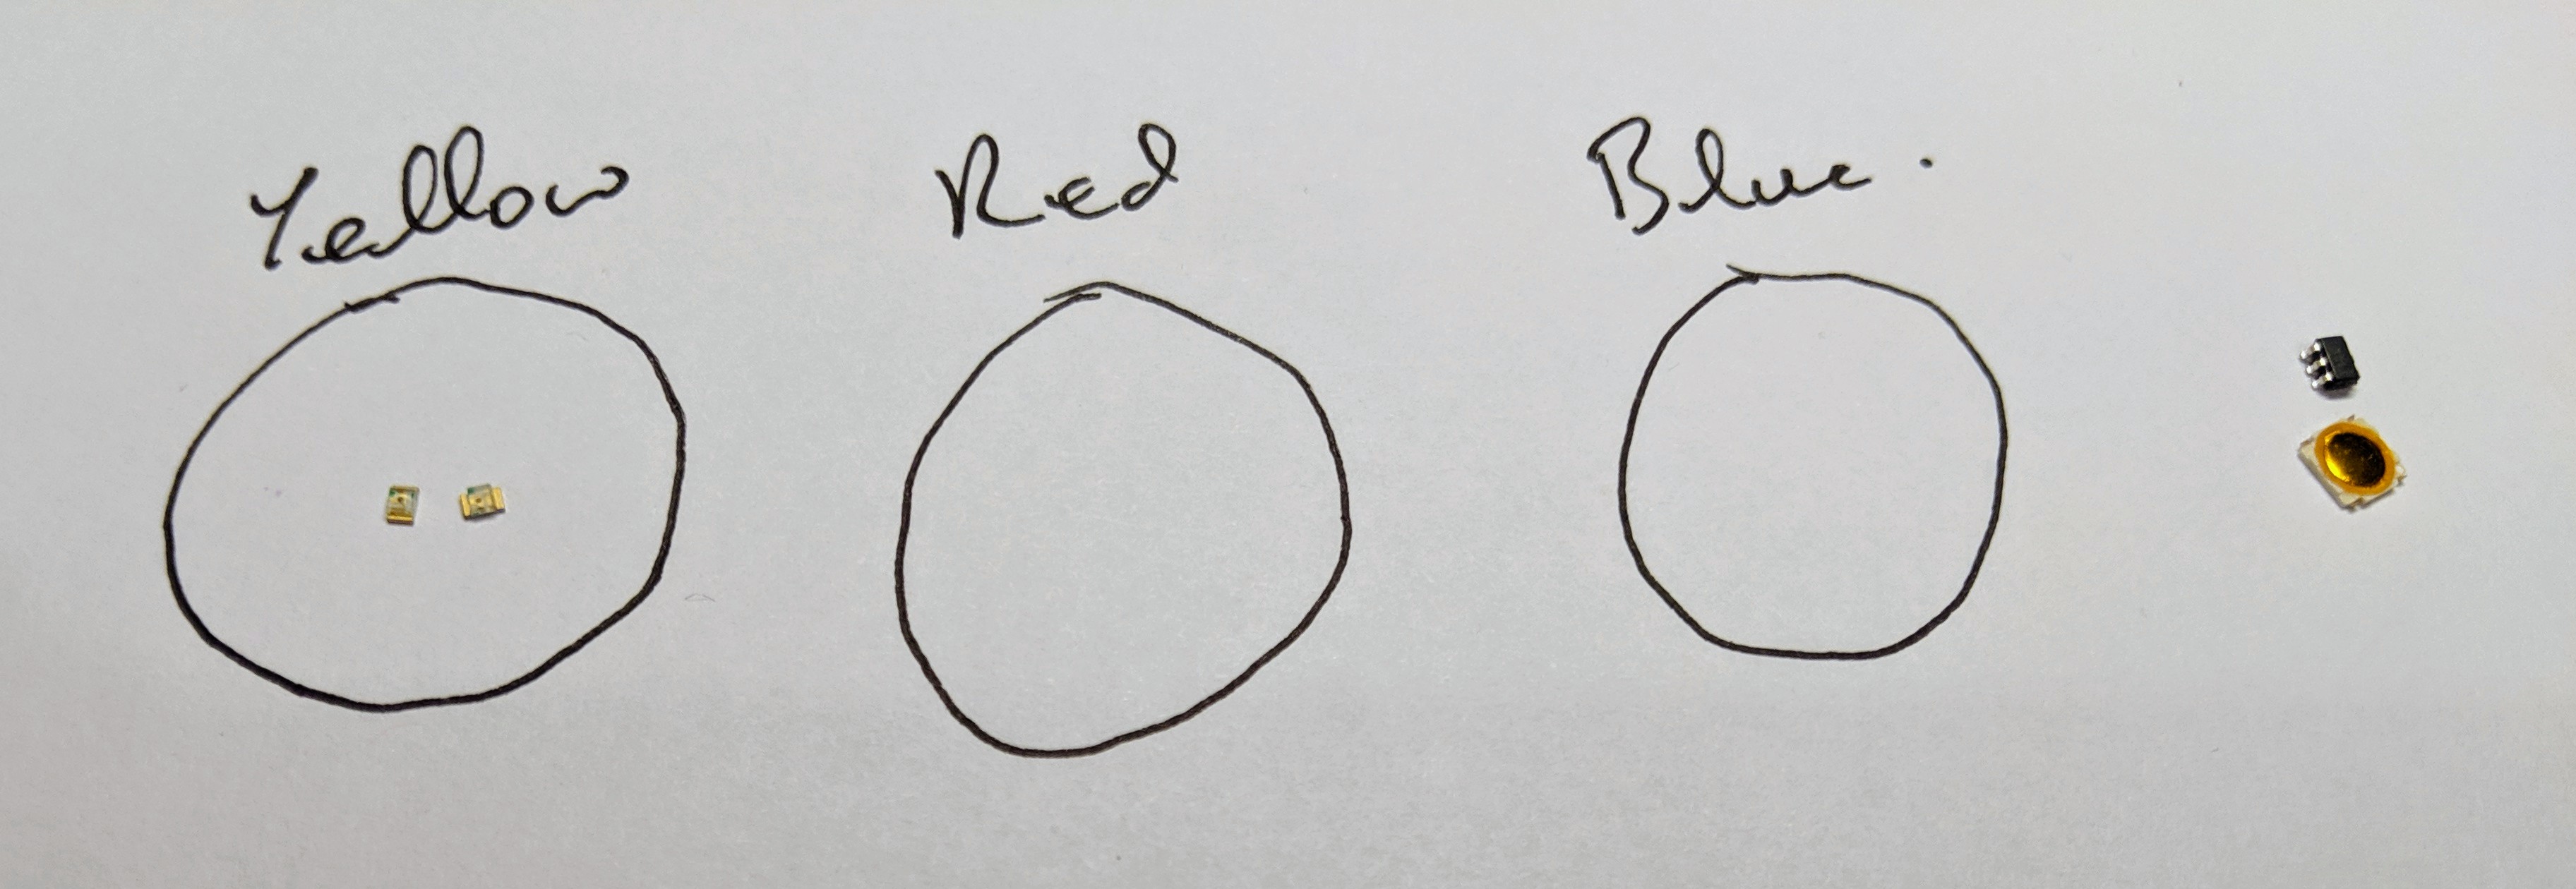 Yellow Red Blue.